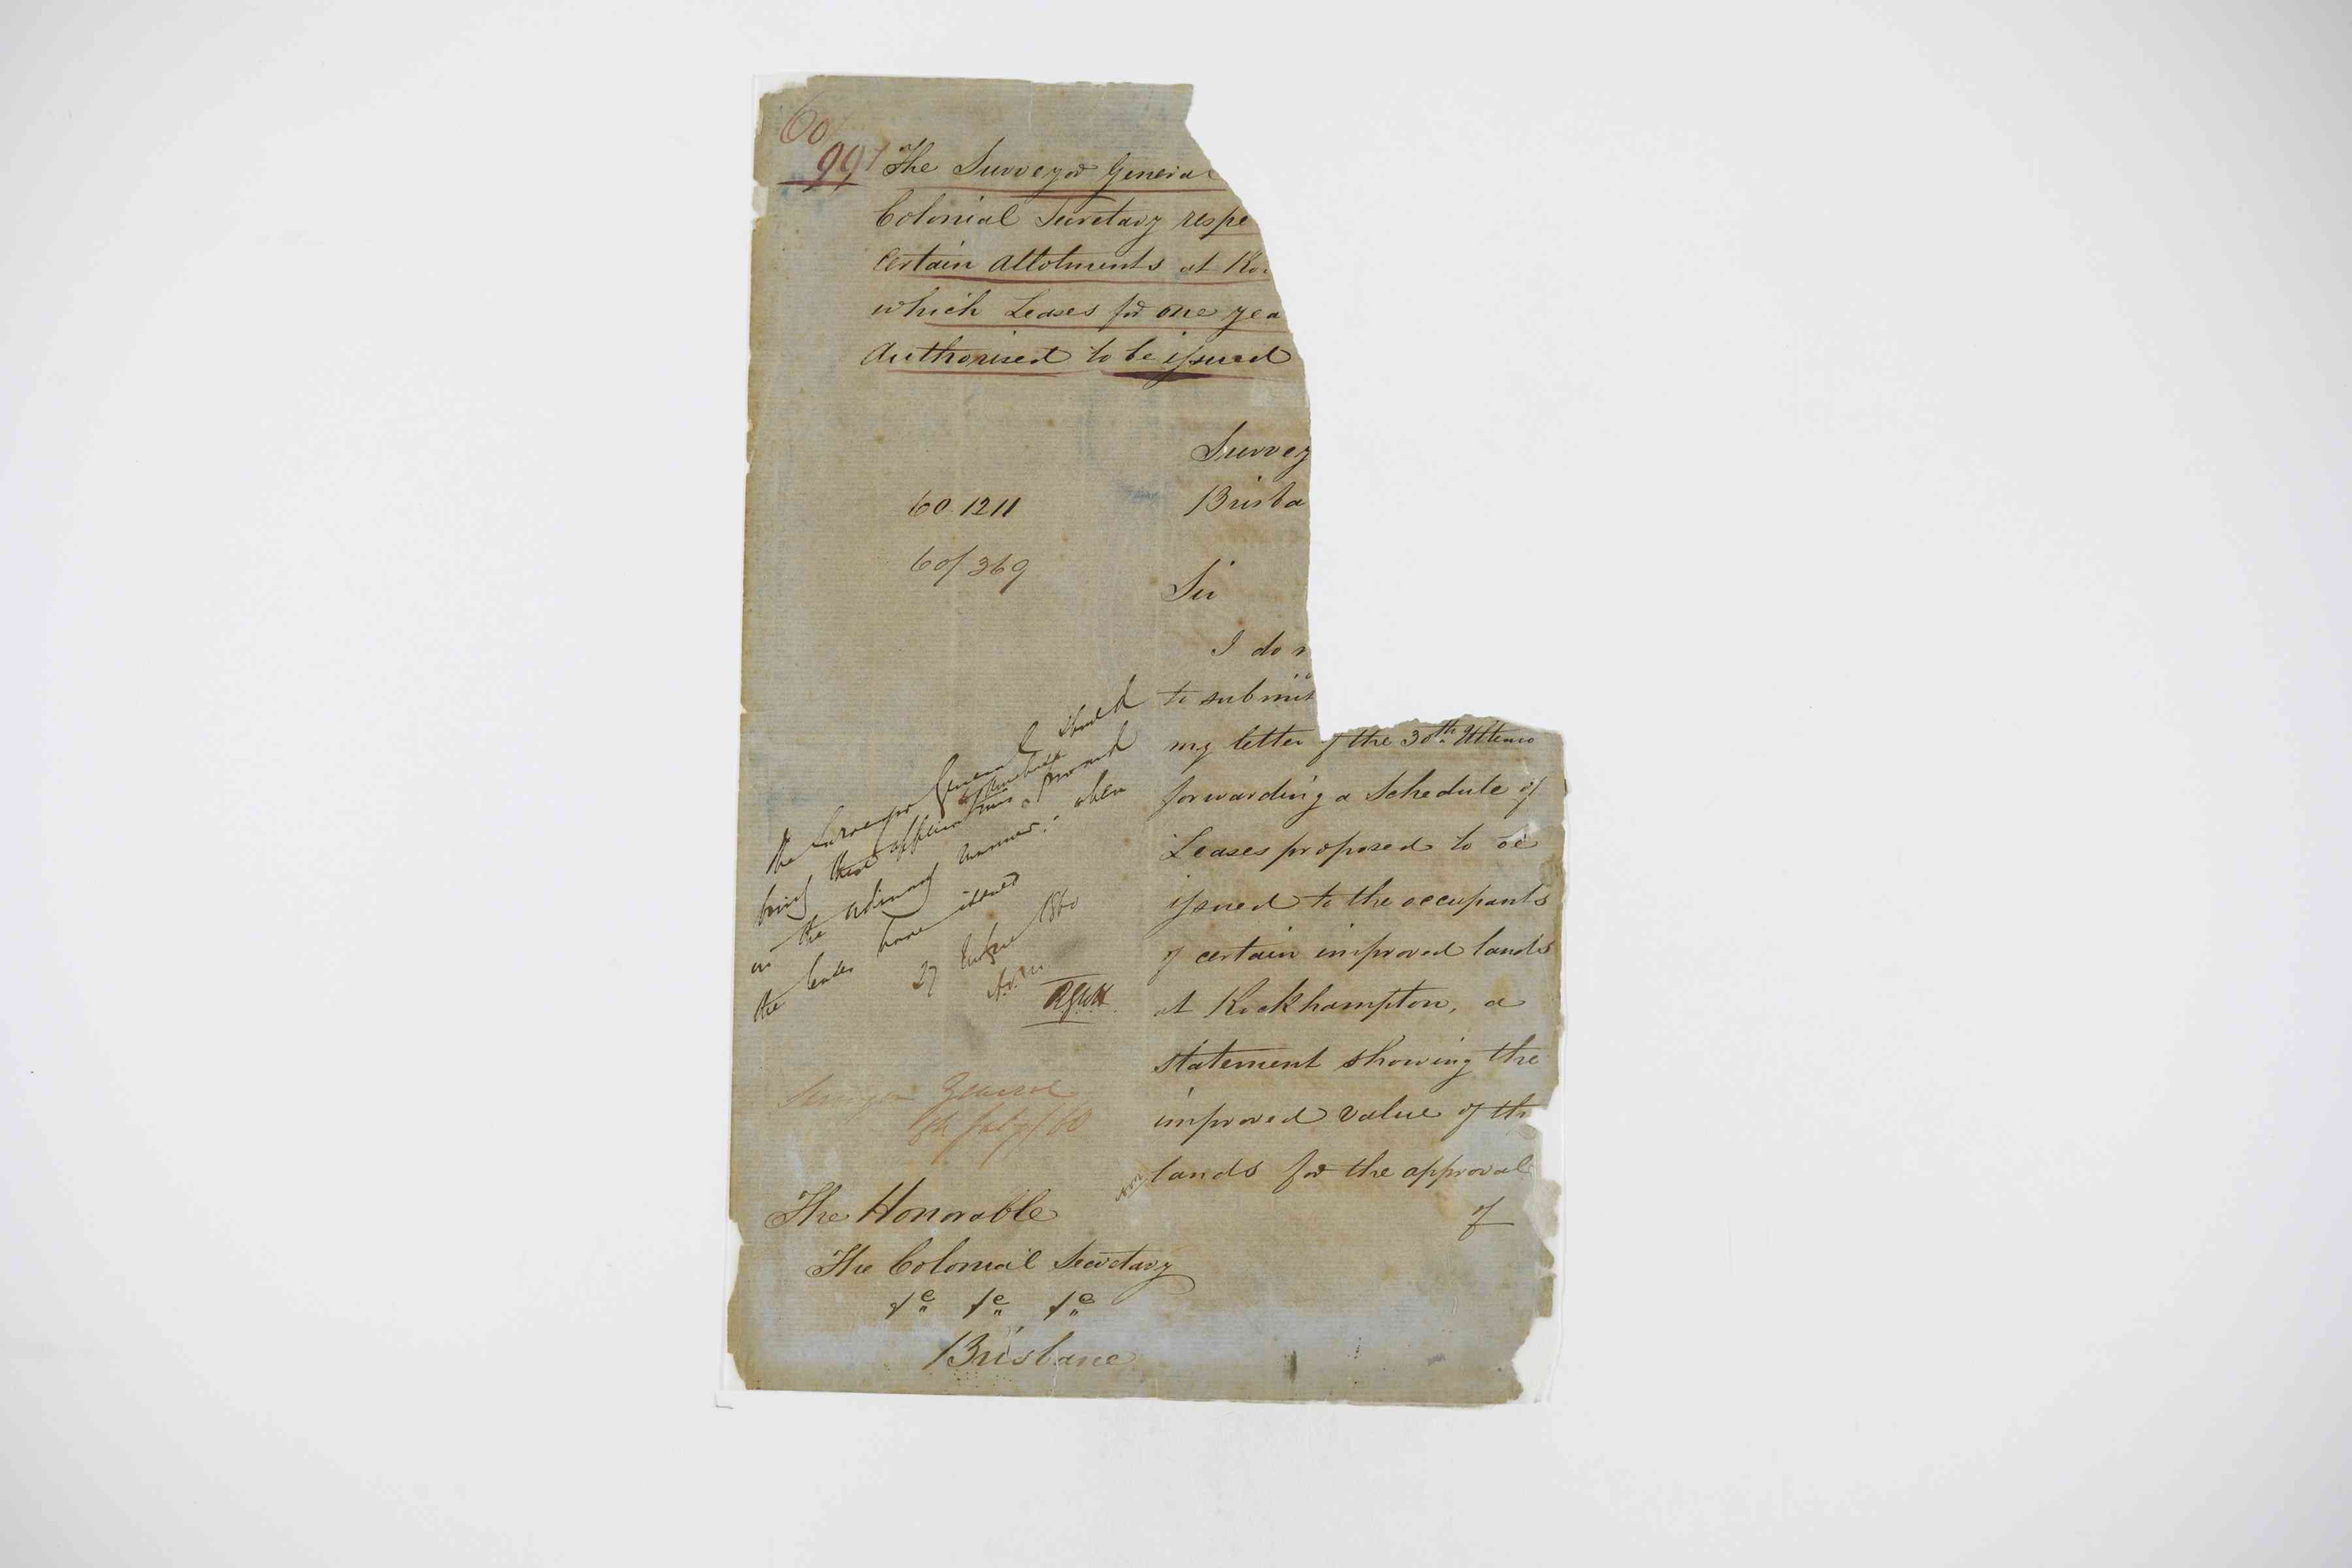 60
991
The Surveyor General
Colonial Secretary respe
certain allotments at Ro
which Leases for one yea
authorised to be issued
Survey
Brisba
60.1211
60/369
Sir
I do
to submit
my letter of the 30th Ultimo
forwarding a Schedule of
Leases proposed to be
issued to the occupants
of certain improved lands
at Rockhampton, a
statement showing the
improved value of the
lands for the approval
of
The Surveyor General should
bring these applications to purchase forward
in the ordinary manner: when
the leases have issued
27 1860
RGWH
General
8th July/60
The Honorable
The Colonial Secretary
&c &c &c
Brisbane